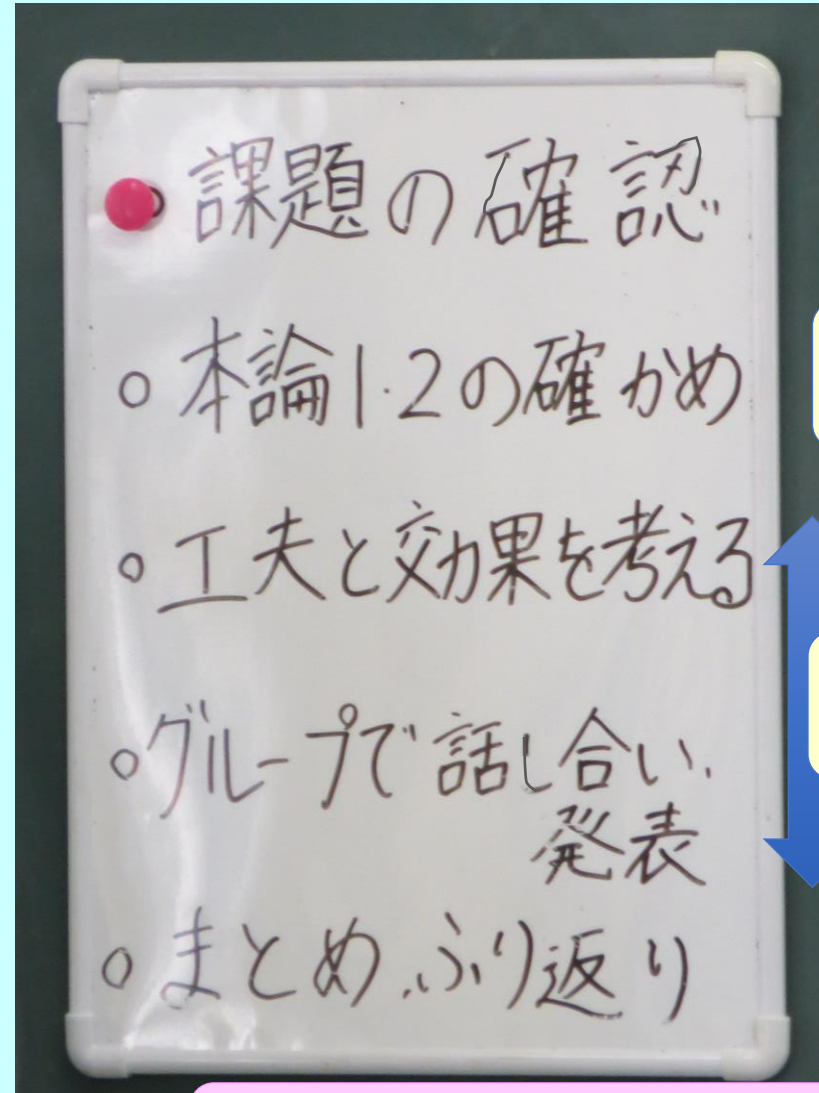 課題の確認
○本論1・2の確かめ
○工夫と効果を考える
○グループで話し合い、
発表
○まとめ、ふり返り